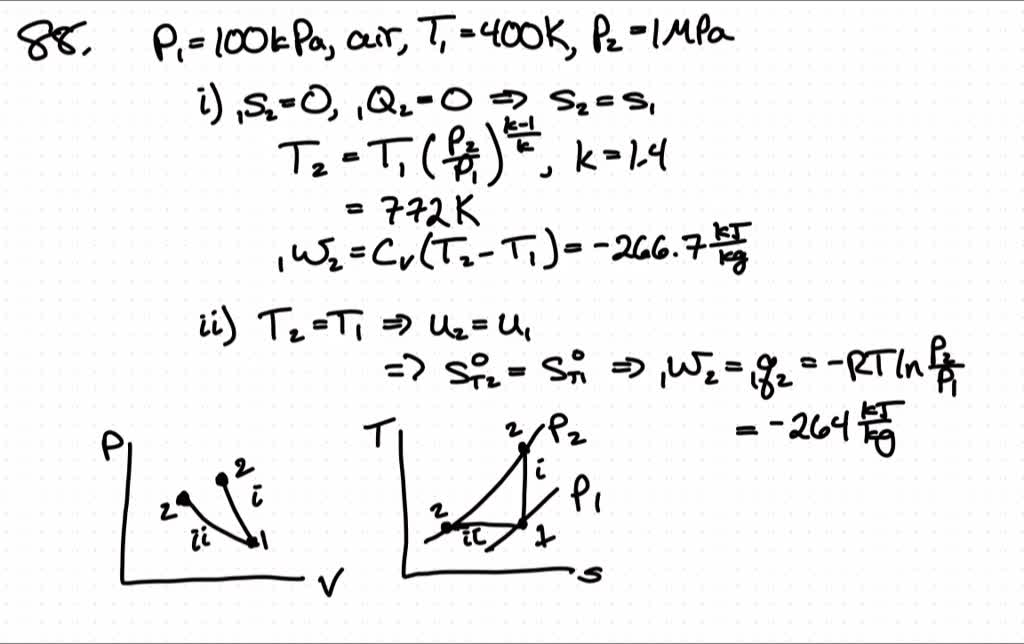 88. P₁=100kPa, air, T₁=400K, P₂=1MPa
i) ₁S₂=0, ₁Q₂=0 ⇒ S₂=S₁
T₂ = T₁(P₂/P₁)^((k-1)/k), k=1.4
= 772K
₁W₂=Cᵥ(T₂-T₁)=-266.7 kJ/kg
ii) T₂=T₁ ⇒ u₂=u₁
=> S°_T2 = S°_T1 ⇒ ₁W₂=₁q₂ = -RTln P₂/P₁
= -264 kJ/kg
P
2
2
i
ii
1
V
T
2
P₂
i
P₁
2
ii
1
s